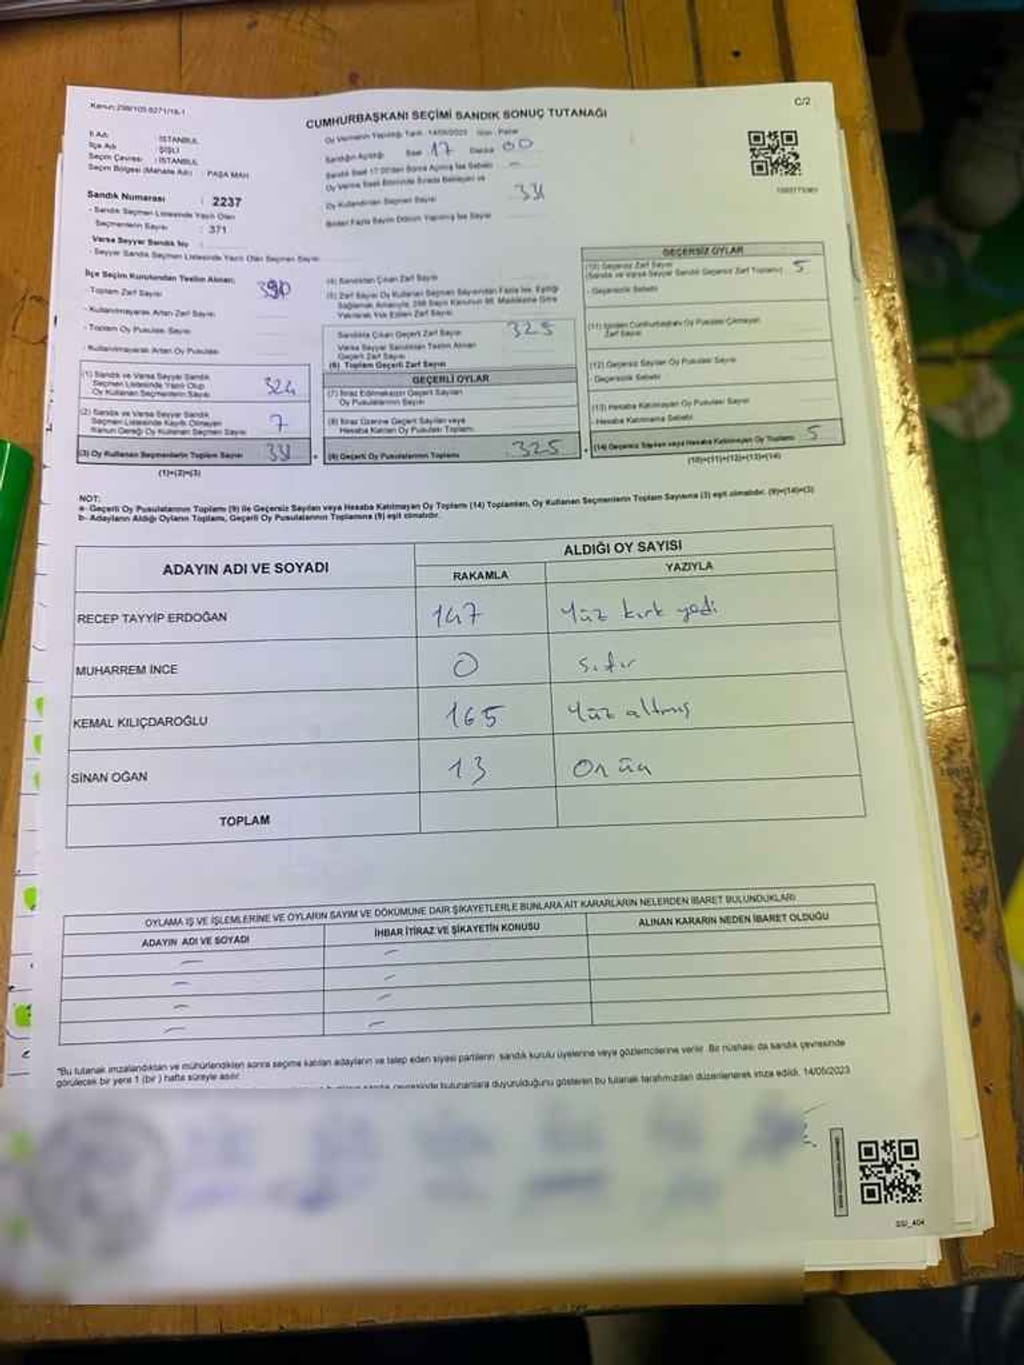 Kanun:298/105-6271/18-1
C/2
CUMHURBAŞKANI SEÇİMİ SANDIK SONUÇ TUTANAĞI
İl Adı : İSTANBUL
İlçe Adı : ŞİŞLİ
Seçim Çevresi : İSTANBUL
Seçim Bölgesi (Mahalle Adı) PAŞA MAH
Sandık Numarası : 2237
- Sandık Seçmen Listesinde Yazılı Olan
Seçmenlerin Sayısı : 371
Varsa Seyyar Sandık No :
- Seyyar Sandık Seçmen Listesinde Yazılı Olan Seçmen Sayısı
Oy Vermenin Yapıldığı Tarih : 14/05/2023 Gün : Pazar
Sandığın Açıldığı Saat 17 Dakika 00
Sandık Saat 17.00'den Sonra Açılmış İse Sebebi –
Oy Kullandırılan Seçmen Sayısı 331
İlçe Seçim Kurulundan Teslim Alınan;
- Toplam Zarf Sayısı 390
- Kullanılmayarak Artan Zarf Sayısı
- Toplam Oy Pusulası Sayısı
- Kullanılmayarak Artan Oy Pusulası
(1) Sandık ve Varsa Seyyar Sandık
Seçmen Listesinde Yazılı Olup
Oy Kullanan Seçmenlerin Sayısı 324
(2) Sandık ve Varsa Seyyar Sandık
Seçmen Listesinde Kayıtlı Olmayan
Kanun Gereği Oy Kullanan Seçmen Sayısı 7
(3) Oy Kullanan Seçmenlerin Toplam Sayısı 331
(1)+(2)=(3)
(4) Sandıktan Çıkan Zarf Sayısı
(5) Zarf Sayısı Oy Kullanan Seçmen Sayısından Fazla İse, Eşitliği
Sağlamak Amacıyla, 298 Sayılı Kanunun 98. Maddesine Göre
Yakılarak Yok Edilen Zarf Sayısı
Sandıkta Çıkan Geçerli Zarf Sayısı 325
Varsa Seyyar Sandıktan Teslim Alınan
Geçerli Zarf Sayısı
(6) Toplam Geçerli Zarf Sayısı
GEÇERLİ OYLAR
(7) İtiraz Edilmeksizin Geçerli Sayılan
Oy Pusulalarının Sayısı
(8) İtiraz Üzerine Geçerli Sayılan veya
Hesaba Katılan Oy Pusulası Toplamı
(9) Geçerli Oy Pusulalarının Toplamı 325
GEÇERSİZ OYLAR
(10) Geçersiz Zarf Sayısı
(Sandık ve Varsa Seyyar Sandık Geçersiz Zarf Toplamı) 5
- Geçersizlik Sebebi
(11) İçinden Cumhurbaşkanı Oy Pusulası Çıkmayan
Zarf Sayısı
(12) Geçersiz Sayılan Oy Pusulası Sayısı
- Geçersizlik Sebebi
(13) Hesaba Katılmayan Oy Pusulası Sayısı
- Hesaba Katılmama Sebebi
(14) Geçersiz Sayılan veya Hesaba Katılmayan Oy Toplamı 5
(10)+(11)+(12)+(13)=(14)
NOT:
a- Geçerli Oy Pusulalarının Toplamı (9) ile Geçersiz Sayılan veya Hesaba Katılmayan Oy Toplamı (14) Toplamları, Oy Kullanan Seçmenlerin Toplam Sayısına (3) eşit olmalıdır. (9)+(14)=(3)
b- Adayların Aldığı Oyların Toplamı, Geçerli Oy Pusulalarının Toplamına (9) eşit olmalıdır.
ADAYIN ADI VE SOYADI
ALDIĞI OY SAYISI
RAKAMLA YAZIYLA
RECEP TAYYİP ERDOĞAN 147 Yüz kırk yedi
MUHARREM İNCE 0 Sıfır
KEMAL KILIÇDAROĞLU 165 Yüz altmış
SİNAN OĞAN 13 On üç
TOPLAM
OYLAMA İŞ VE İŞLEMLERİNE VE OYLARIN SAYIM VE DÖKÜMÜNE DAİR ŞİKAYETLERLE BUNLARA AİT KARARLARIN NELERDEN İBARET BULUNDUKLARI
ADAYIN ADI VE SOYADI İHBAR İTİRAZ VE ŞİKAYETİN KONUSU ALINAN KARARIN NEDEN İBARET OLDUĞU
*Bu tutanak imzalandıktan ve mühürlendikten sonra seçime katılan adayların ve talep eden siyasi partilerin sandık kurulu üyelerine veya gözlemcilerine verilir. Bir nüshası da sandık çevresinde
görülecek bir yere 1 (bir) hafta süreyle asılır.
sandık çevresinde bulunanlara duyurulduğunu gösteren bu tutanak tarafımızdan düzenlenerek imza edildi. 14/05/2023